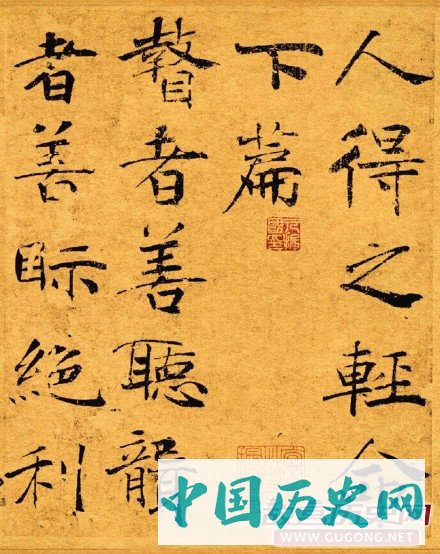 人得之輕
下篇
瞽者善聽
者善眎絕利
中国历史网
WWW.GUGONG.NET